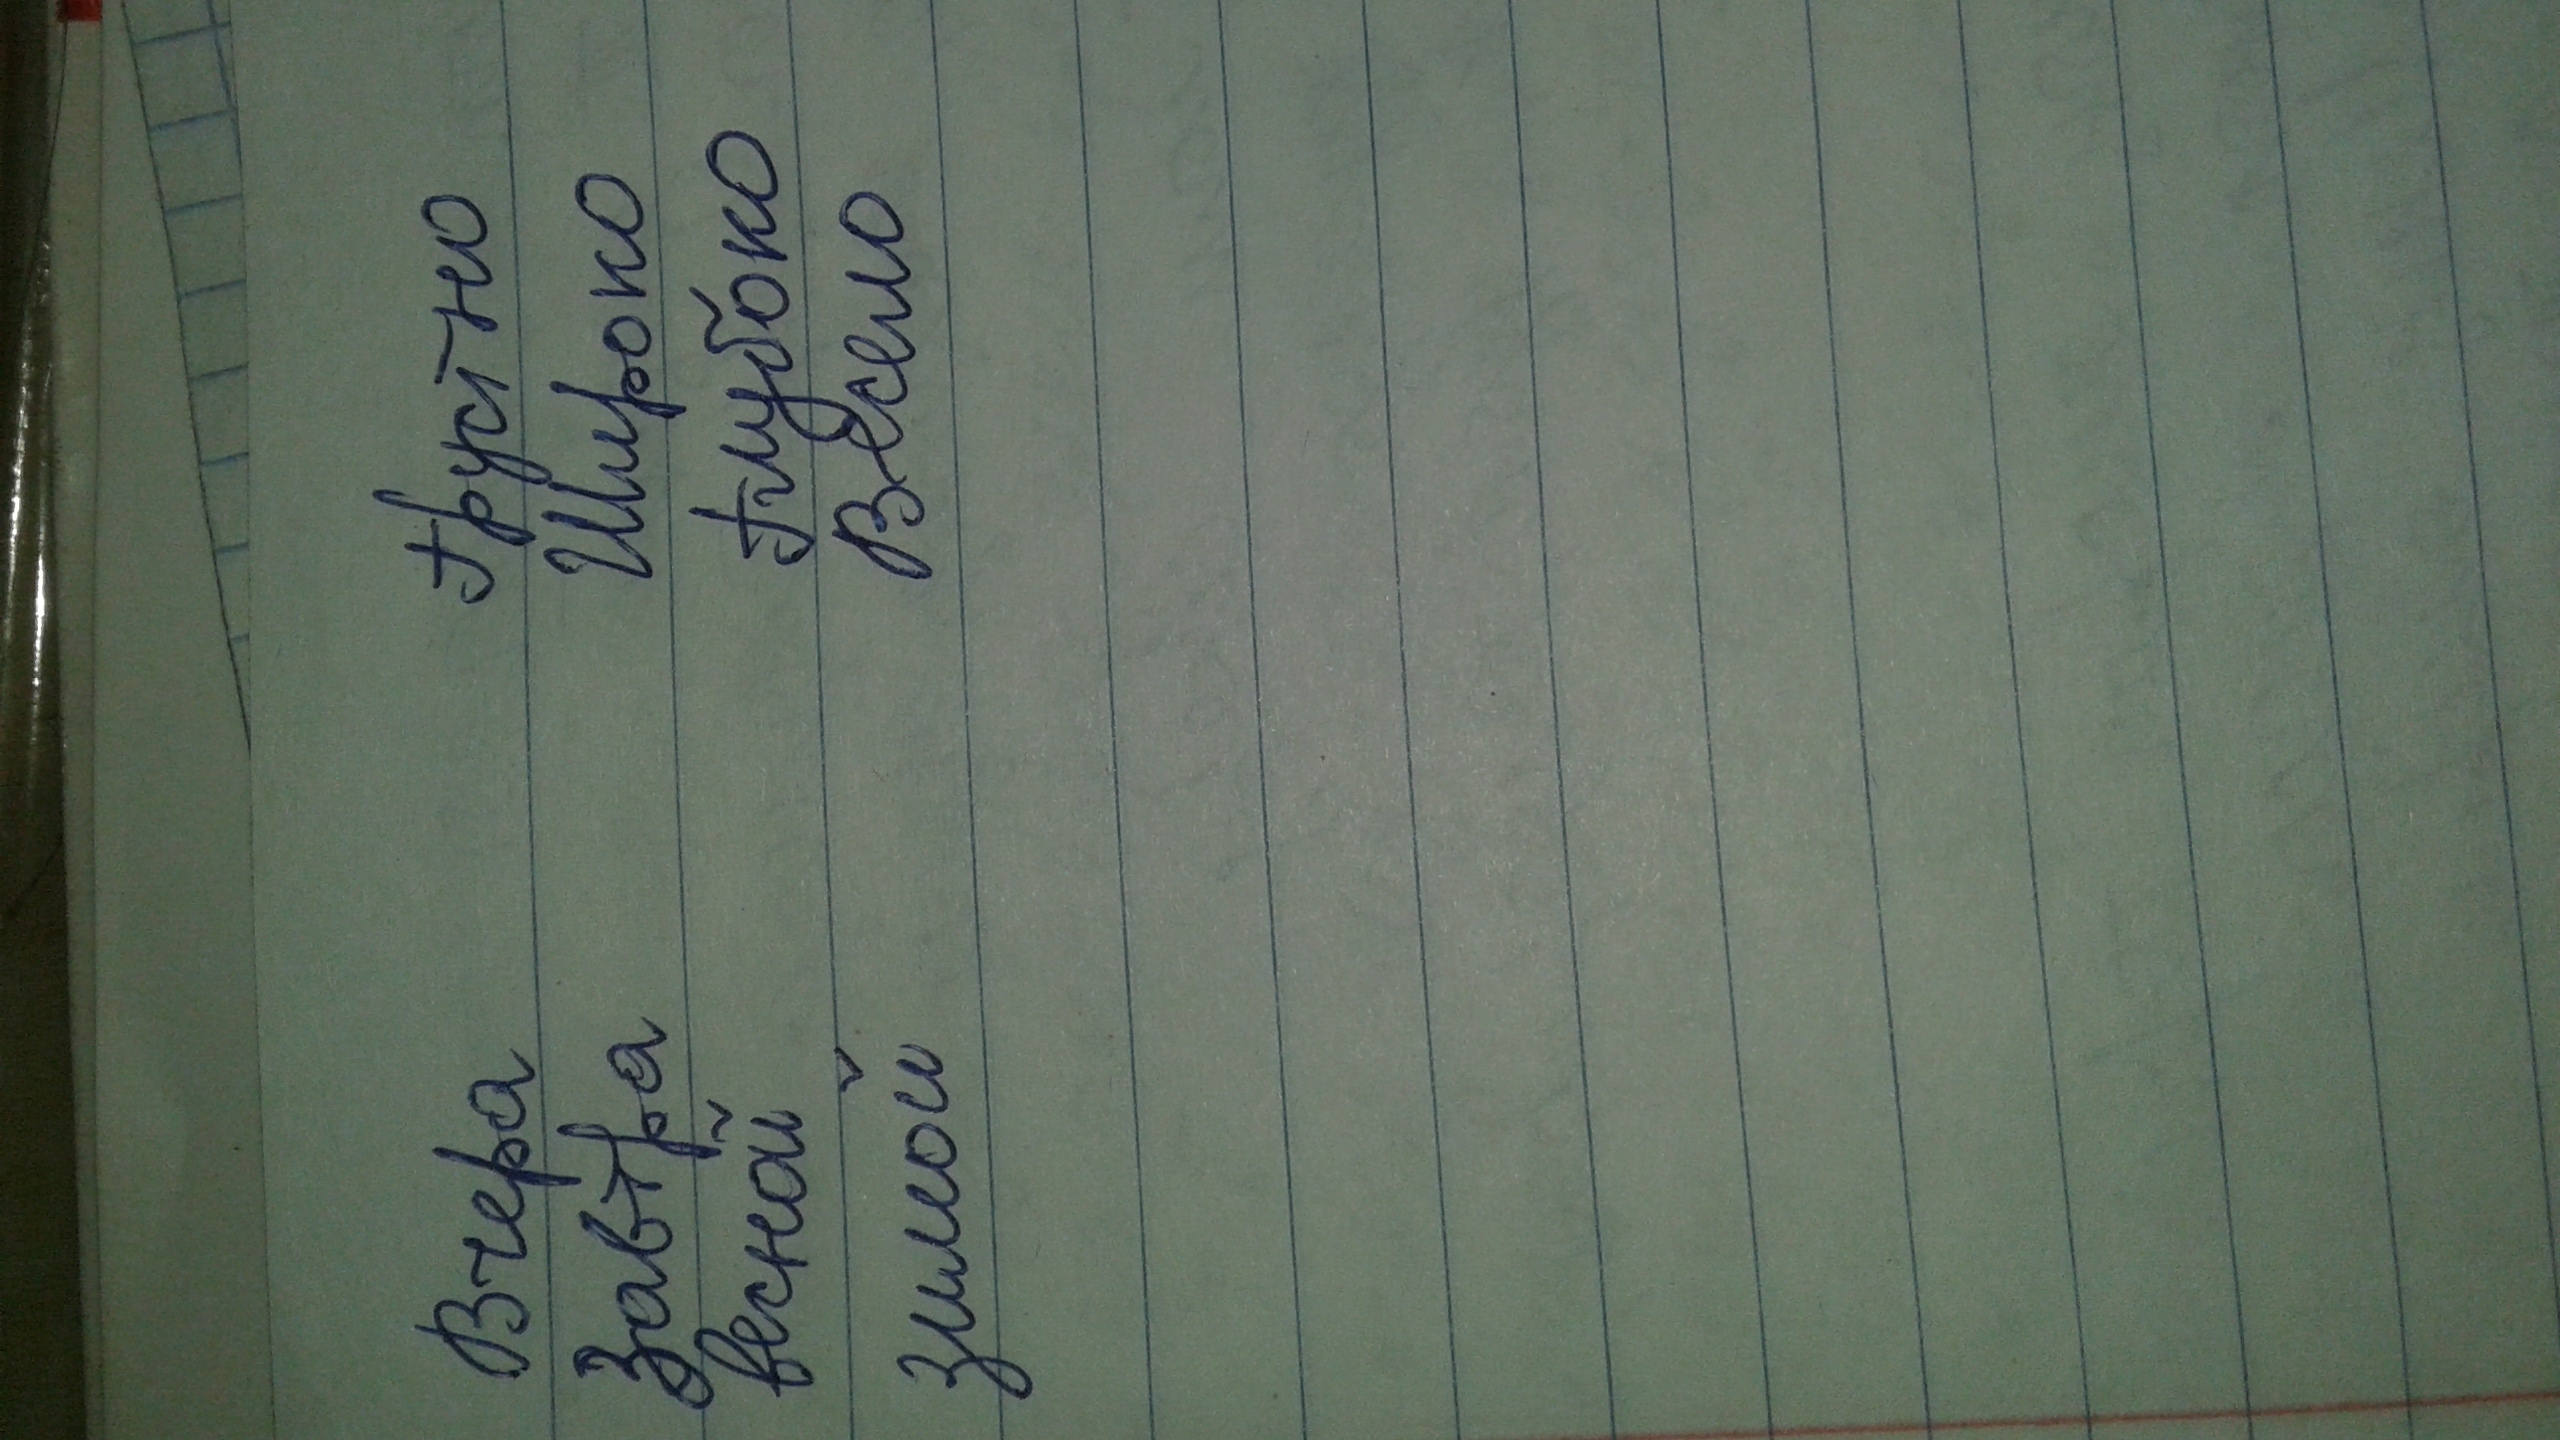 Вчера Грустно
Завтра Широко
весной Глубоко
зимой Весело